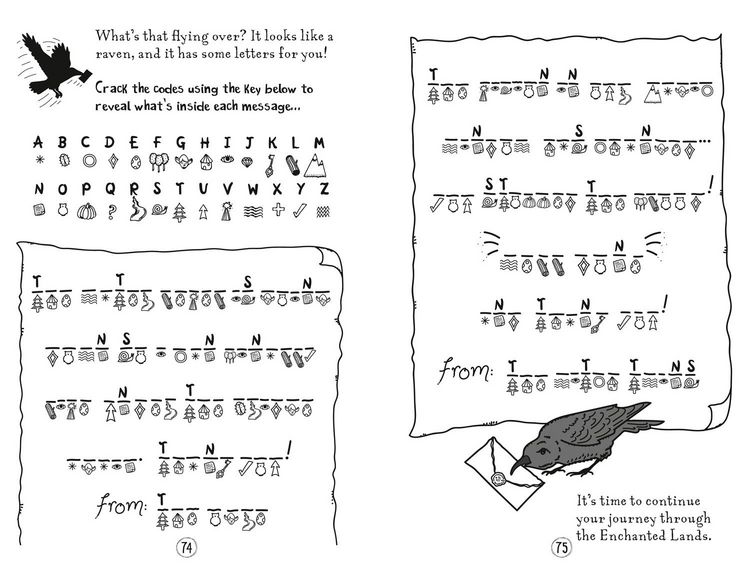 What's that flying over? It looks like a
raven, and it has some letters for you!
Crack the codes using the key below to
reveal what's inside each message...
A B C D E F G H I J K L M
N O P Q R S T U V W X Y Z
?
T T S N
N S N N
N T
. T N !
from: T
74
T N N
N S N ...
S T T !
N
N T N !
from: T T T N S
It's time to continue
your journey through
the Enchanted Lands.
75